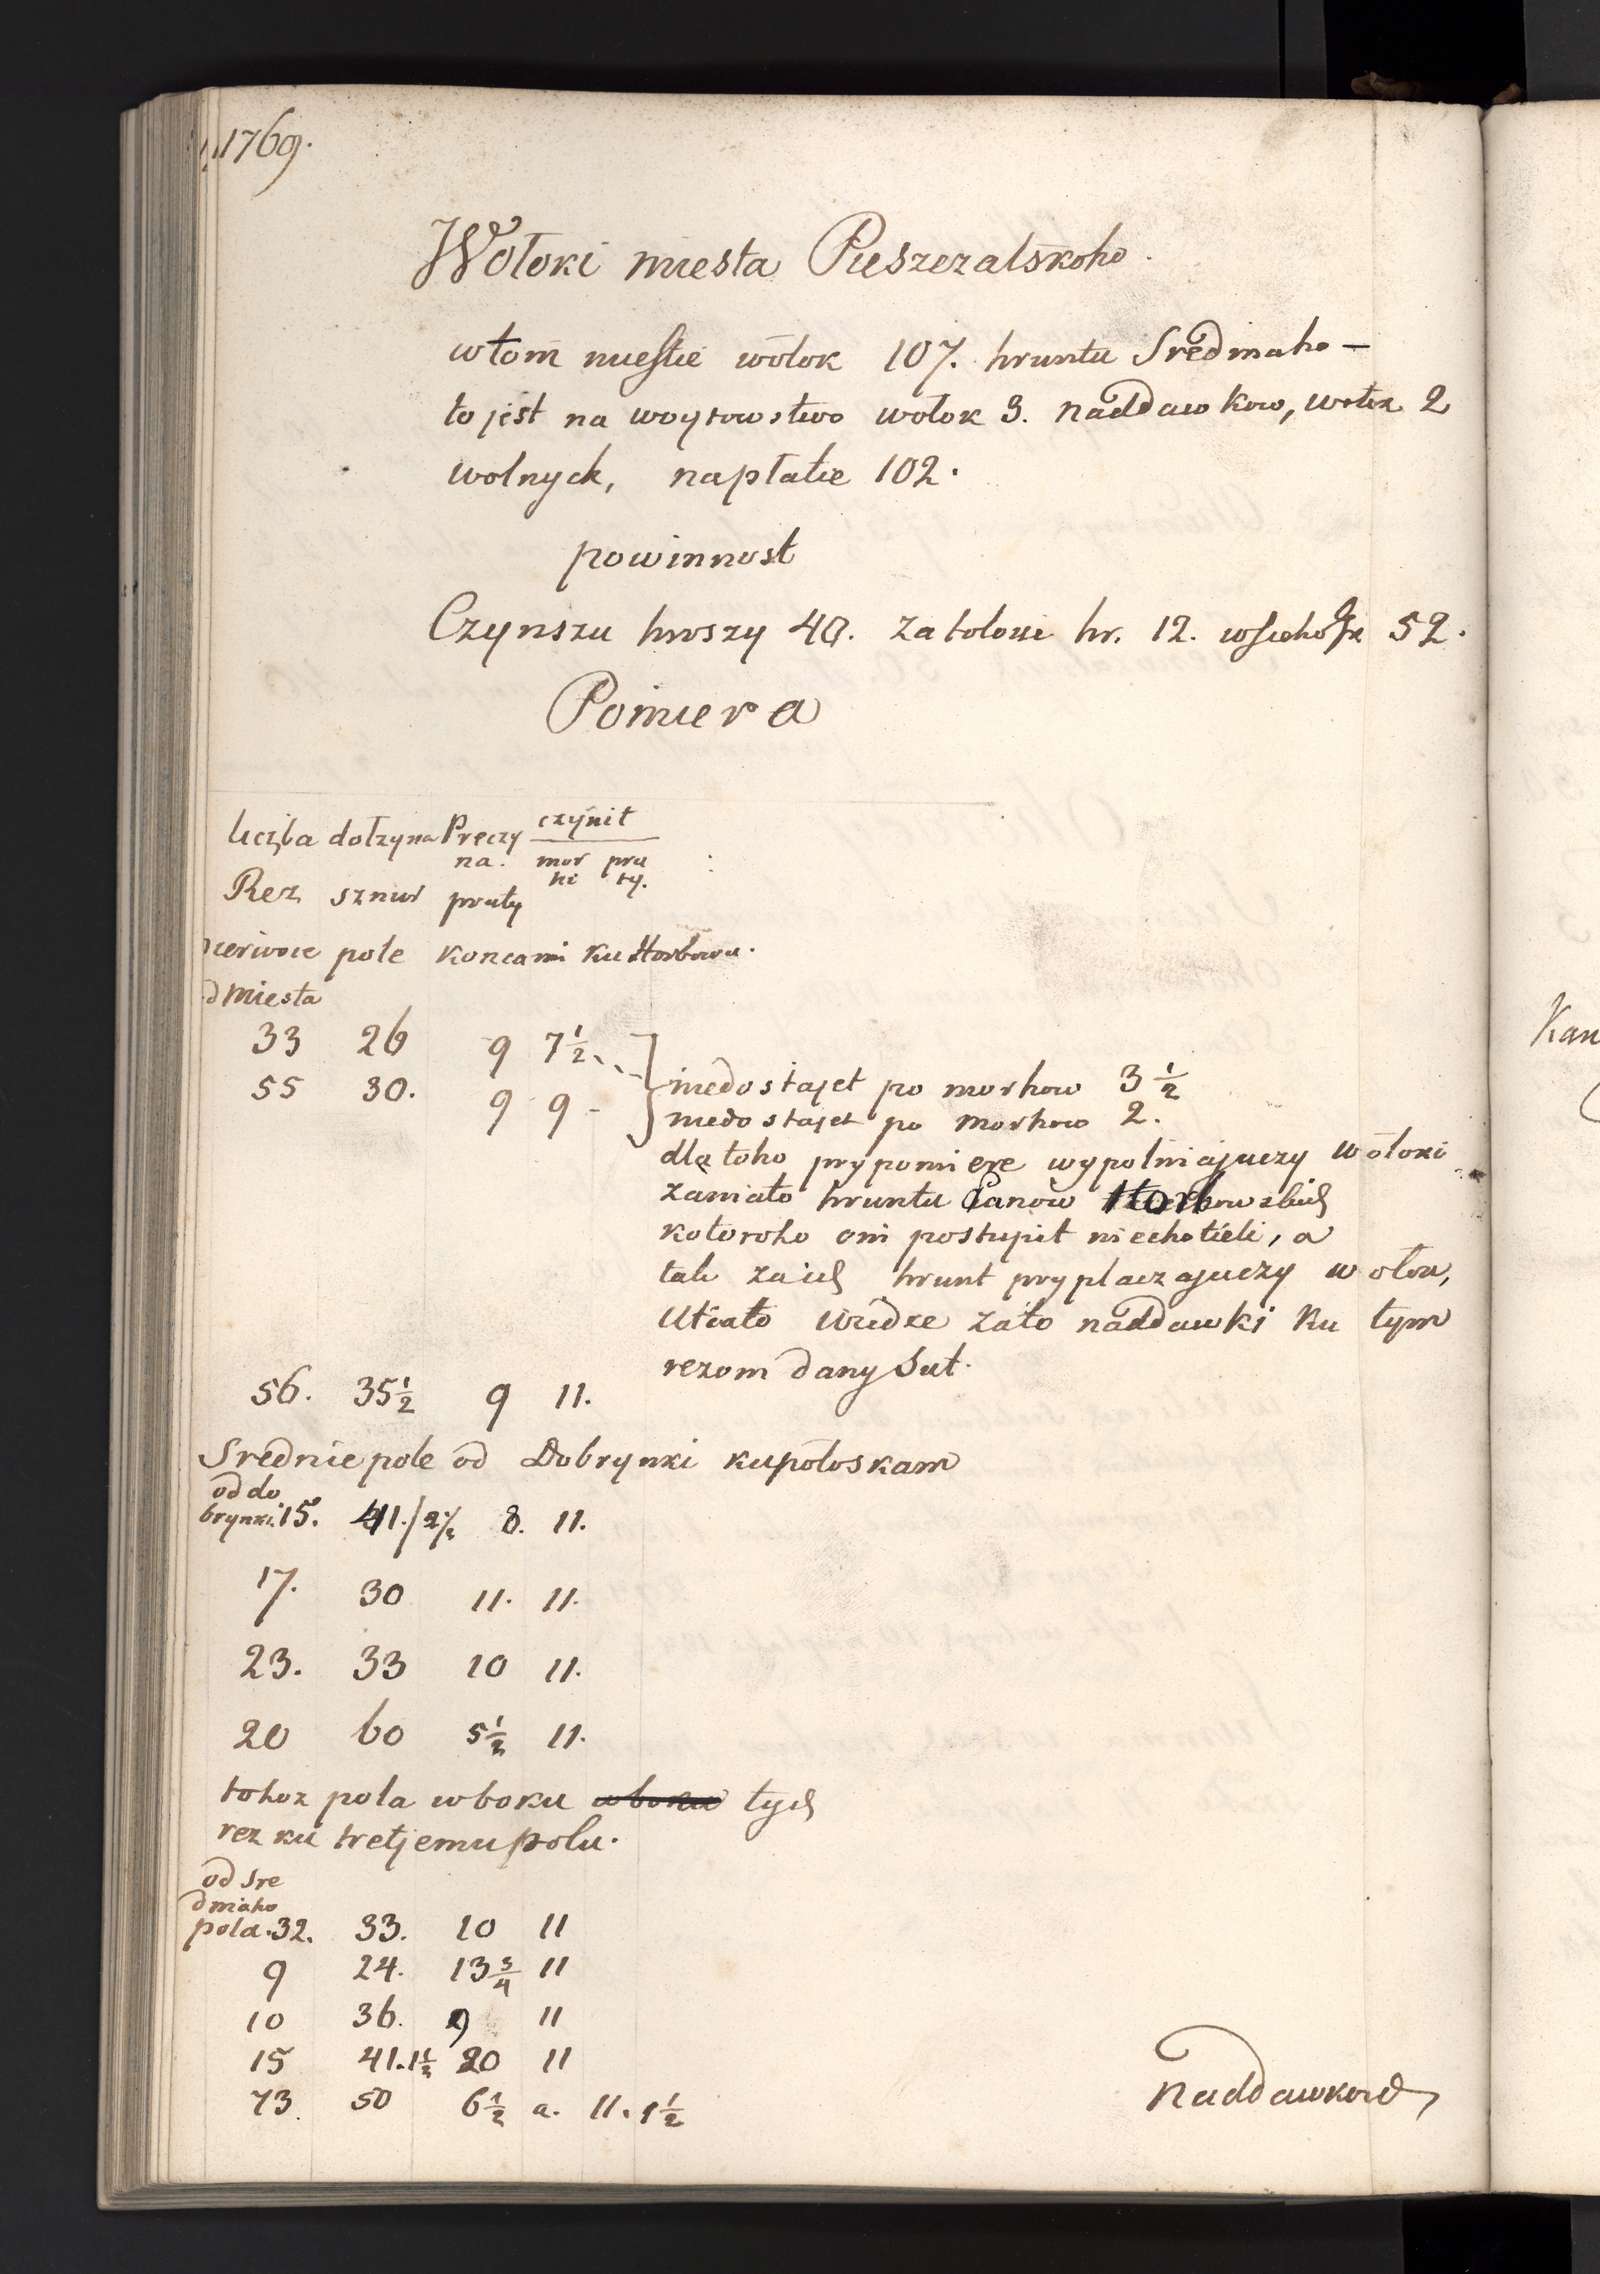 1769.
Wołoki miesta Pieszczatskoho.
wtom miestie wołok 107. hruntu Sredniaho —
to jest na woytowstwo wołok 3. naddawkow, wołok 2
wolnych, napłatie 102.
powinnost
Czynszu hroszy 40. zatołoki hr. 12. wsieho hr 52.
Pomiera
liczba dołzyna Preczy czynit
na. mor pru
hi ty.
Rez sznur pruty
pierwoie pole koncami ku Horbowu.
od miesta
33 26 9 7½
55 30. 9 9 -
niedostajet po morhow 3 ½
niedostajet po morhow 2.
dla toho prypomiere wypołniajuczy wołoki
zaniato hruntu Panow Horbowskich
kotoroho oni postupit niechotieli, a
tak za ich hrunt prypłaczajuczy wołok,
Utiato zato naddawki ku tym
rezom dany Sut.
56. 35½ 9 11.
Srednie pole od Dobrynki kupołoskam
od do
brynki. 15. 41. / 2½ 8. 11.
17. 30 11. 11.
23. 33 10 11.
20 60 5½ 11.
tohoz pola wboku wboku tych
rez ku tretjemu polu.
od Sre
dniaho
pola. 32. 33. 10 11
9 24. 13¾ 11
10 36. 9 11
15 41. 1½ 20 11
73 50 6½ a. 11. 1½
Naddawkow
Kan